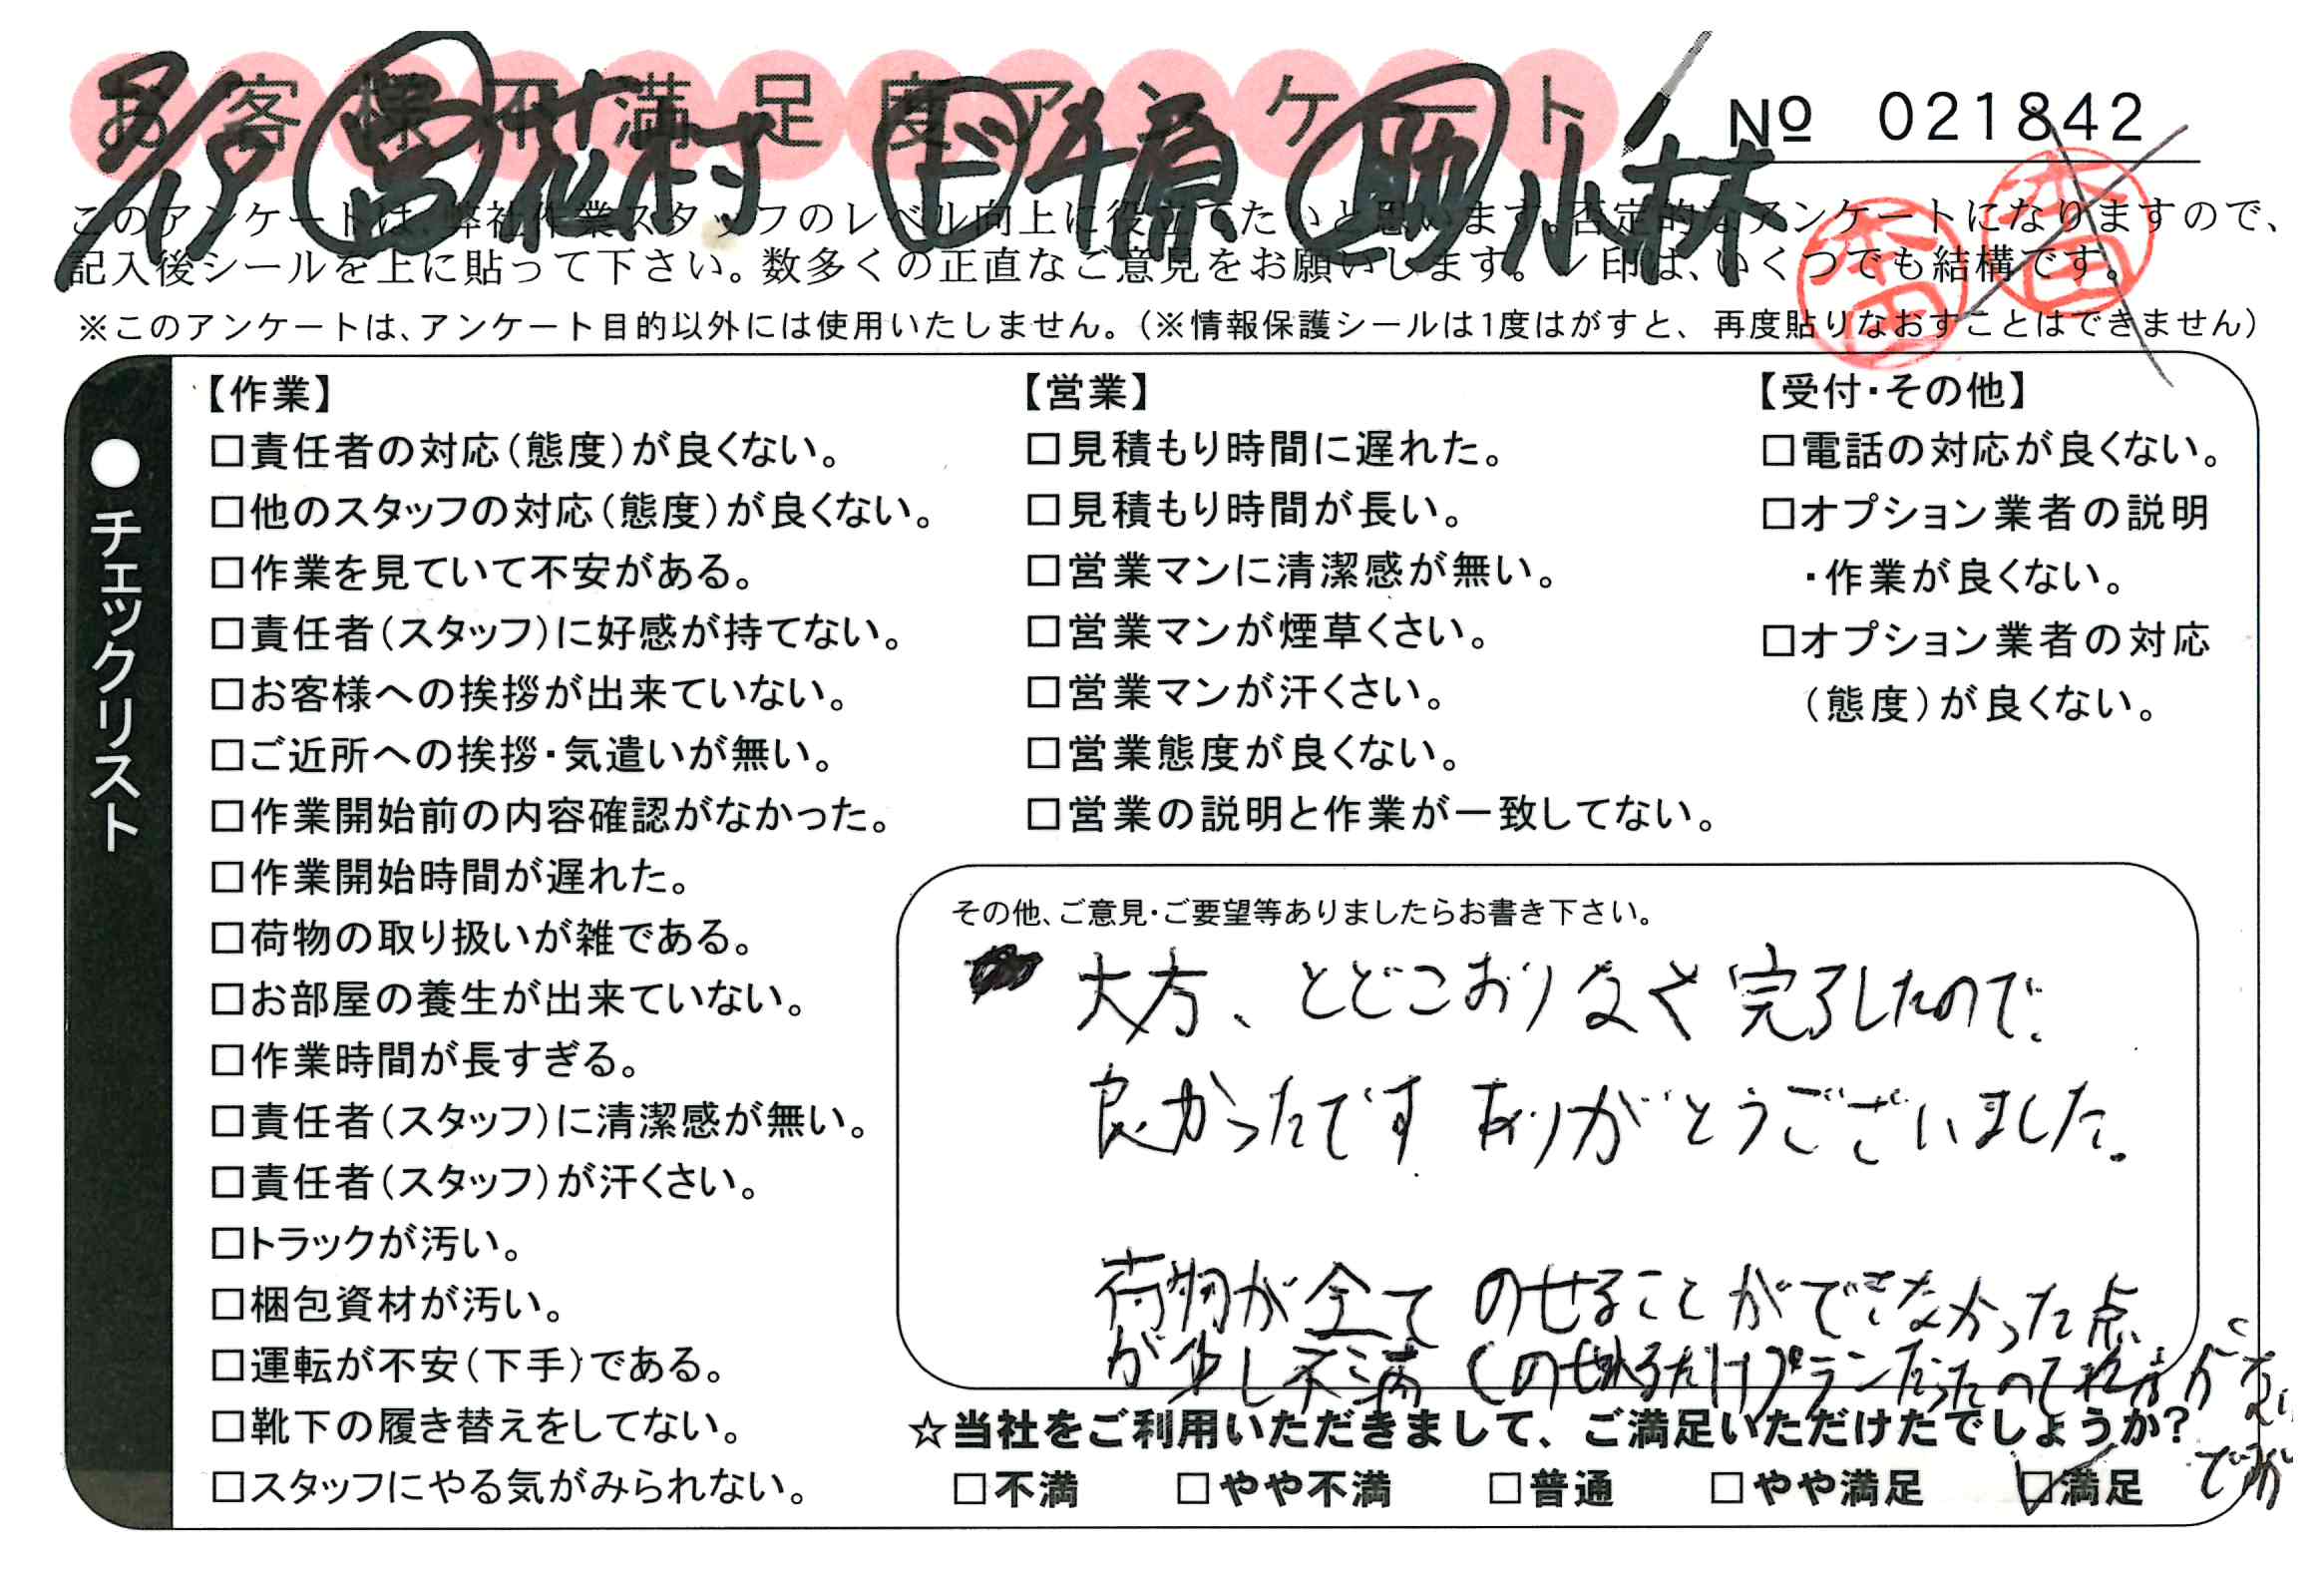 お客様不満足度アンケート
№ 021842
7/19 営 花村 ド 井原 助 小林
このアンケートは、弊社作業スタッフのレベル向上に役立てたいと思います。否定的なアンケートになりますので、
記入後シールを上に貼って下さい。数多くの正直なご意見をお願いします。✓印は、いくつでも結構です。
※このアンケートは、アンケート目的以外には使用いたしません。(※情報保護シールは1度はがすと、再度貼りなおすことはできません)
●チェックリスト
【作業】
□責任者の対応(態度)が良くない。
□他のスタッフの対応(態度)が良くない。
□作業を見ていて不安がある。
□責任者(スタッフ)に好感が持てない。
□お客様への挨拶が出来ていない。
□ご近所への挨拶・気遣いが無い。
□作業開始前の内容確認がなかった。
□作業開始時間が遅れた。
□荷物の取り扱いが雑である。
□お部屋の養生が出来ていない。
□作業時間が長すぎる。
□責任者(スタッフ)に清潔感が無い。
□責任者(スタッフ)が汗くさい。
□トラックが汚い。
□梱包資材が汚い。
□運転が不安(下手)である。
□靴下の履き替えをしてない。
□スタッフにやる気がみられない。
【営業】
□見積もり時間に遅れた。
□見積もり時間が長い。
□営業マンに清潔感が無い。
□営業マンが煙草くさい。
□営業マンが汗くさい。
□営業態度が良くない。
□営業の説明と作業が一致してない。
【受付・その他】
□電話の対応が良くない。
□オプション業者の説明
・作業が良くない。
□オプション業者の対応
(態度)が良くない。
その他、ご意見・ご要望等ありましたらお書き下さい。
大方、とどこおりなく完了したので、
良かったです ありがとうございました。
荷物が全て のせることができなかった点
が少し不満 (のせれるだけプランだったので仕方がない
ですが
☆当社をご利用いただきまして、ご満足いただけたでしょうか?
□不満 □やや不満 □普通 □やや満足 ☑満足